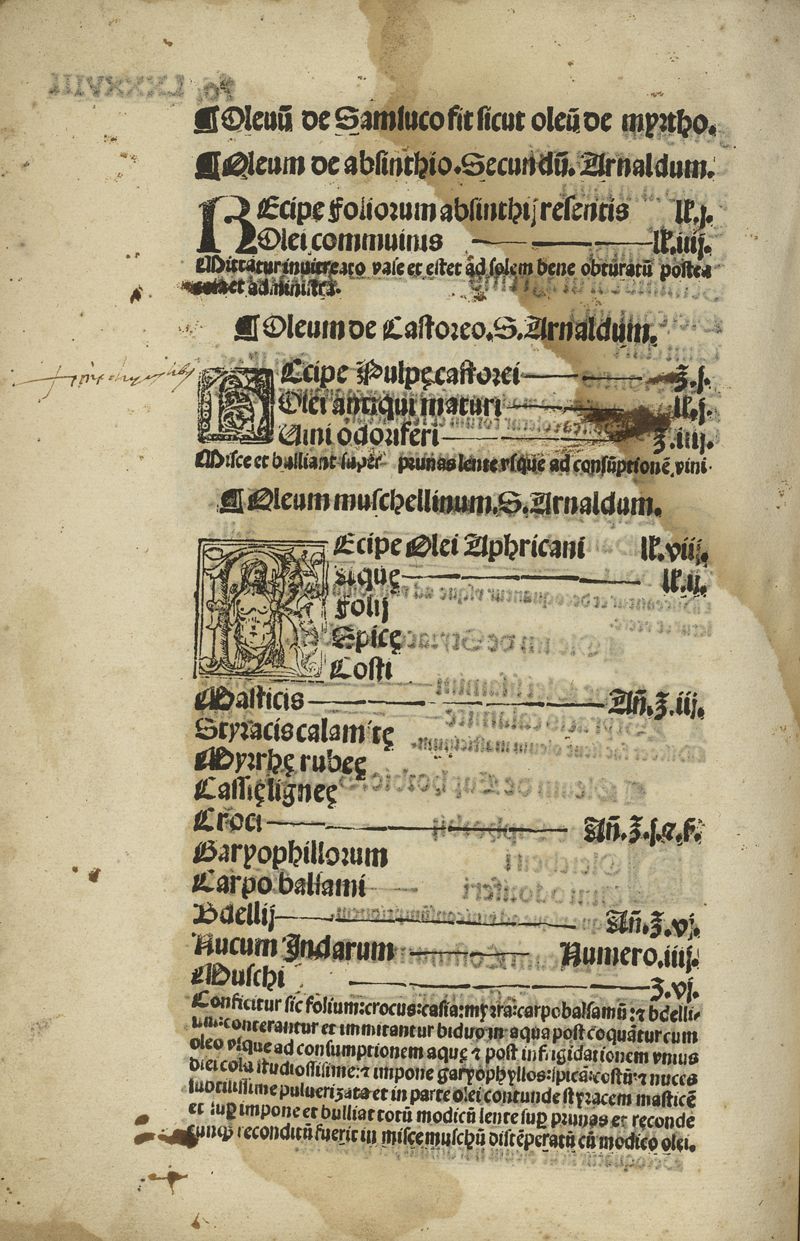 ¶Oleuū de Samsuco fit sicut oleū de myrtho.
¶Oleum de absinthio. Secundū. Arnaldum.
REcipe foliorum absinthij resentis lƀ.j.
Olei communis lƀ.iiij.
Mittatur in vitreato vase et estet ad solem bene obturatū postea
et administra.
¶Oleum de Castoreo. S. Arnaldum.
REcipe Pulpę castorei ʒ.j.
Olei antiqui maturi lƀ.j.
Uini odoriferi ʒ.iiij.
Misce et bulliant super prunas lente vsque ad consūptionē vini.
¶Oleum muschellinum. S. Arnaldum.
REcipe Olei Aphricani lƀ.viij.
Aquę lƀ.ij.
Folij
Spicę
Costi
Masticis Añ.ʒ.iij.
Styracis calamitę
Myrrhę rubeę
Cassię ligneę
Croci Añ.ʒ.j.⁊.s.
Garyophillorum
Carpo balsami
Bdellij Añ.ʒ.vj.
Nucum Indarum Numero.iiij.
Muschi ʒ.vj.
Conficitur sic folium: crocus: casia: myrra: carpobalsamū: ⁊ bdelli-
um: conterantur et immitantur biduo in aqua post coquātur cum
oleo vsque ad consumptionem aquę ⁊ post infrigidationem vnius
diei cola studiosissime: ⁊ impone garyophyllos: spicā: costū: ⁊ nuces
subtilissime puluerizata et in parte olei contunde styracem masticē
et suꝑ impone et bulliat totū modicū lente suꝑ prunas et reconde
cunꝙ reconditū fuerit in misce muschū distēperatū cū modico olei.